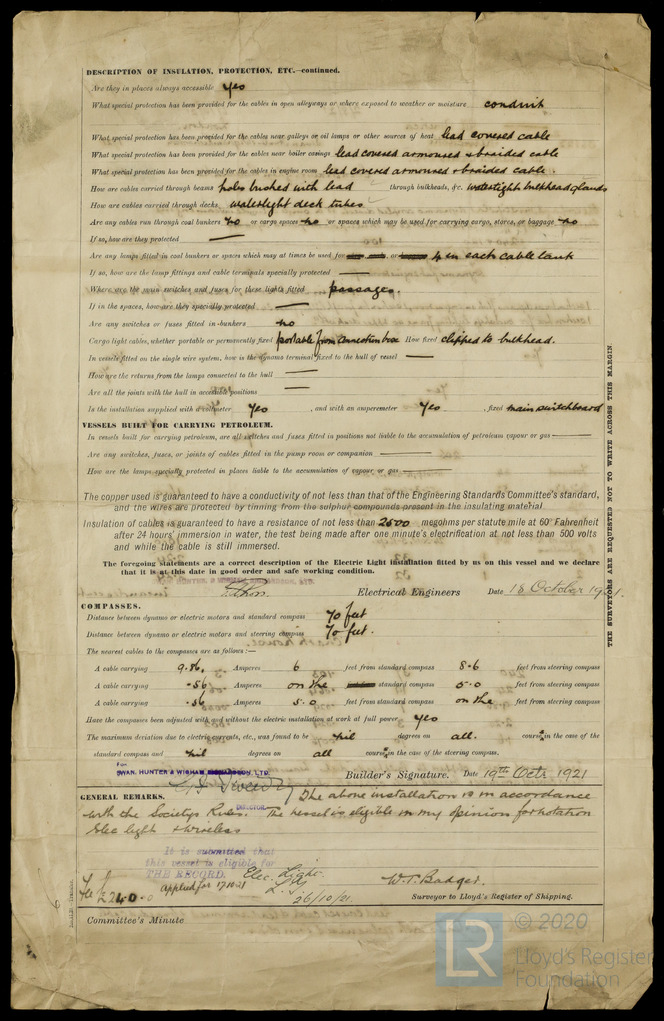 DESCRIPTION OF INSULATION, PROTECTION, ETC.—continued.
Are they in places always accessible yes
What special protection has been provided for the cables in open alleyways or where exposed to weather or moisture conduit
What special protection has been provided for the cables near galleys or oil lamps or other sources of heat lead covered cable
What special protection has been provided for the cables near boiler casings lead covered armoured & braided cable
What special protection has been provided for the cables in engine room lead covered armoured & braided cable.
How are cables carried through beams holes bushed with lead through bulkheads, &c. watertight bulkhead glands
How are cables carried through decks watertight deck tubes
Are any cables run through coal bunkers no or cargo spaces no or spaces which may be used for carrying cargo, stores, or baggage no
If so, how are they protected —
Are any lamps fitted in coal bunkers or spaces which may at times be used for or 4 in each cable tank
If so, how are the lamp fittings and cable terminals specially protected —
Where are the main switches and fuses for these lights fitted passage.
If in the spaces, how are they specially protected —
Are any switches or fuses fitted in bunkers no
Cargo light cables, whether portable or permanently fixed portable from connection box How fixed clipped to bulkhead.
In vessels fitted on the single wire system, how is the dynamo terminal fixed to the hull of vessel —
How are the returns from the lamps connected to the hull —
Are all the joints with the hull in accessible positions —
Is the installation supplied with a voltmeter yes , and with an amperemeter yes , fixed main switchboard
VESSELS BUILT FOR CARRYING PETROLEUM.
In vessels built for carrying petroleum, are all switches and fuses fitted in positions not liable to the accumulation of petroleum vapour or gas —
Are any switches, fuses, or joints of cables fitted in the pump room or companion —
How are the lamps specially protected in places liable to the accumulation of vapour or gas —
The copper used is guaranteed to have a conductivity of not less than that of the Engineering Standards Committee's standard,
and the wires are protected by tinning from the sulphur compounds present in the insulating material.
Insulation of cables is guaranteed to have a resistance of not less than 2500 megohms per statute mile at 60° Fahrenheit
after 24 hours' immersion in water, the test being made after one minute's electrification at not less than 500 volts
and while the cable is still immersed.
The foregoing statements are a correct description of the Electric Light installation fitted by us on this vessel and we declare
that it is at this date in good order and safe working condition.
Electrical Engineers Date 18 October 1921.
COMPASSES.
Distance between dynamo or electric motors and standard compass 70 feet
Distance between dynamo or electric motors and steering compass 70 feet.
The nearest cables to the compasses are as follows:—
A cable carrying 9.86. Amperes 6 feet from standard compass 8.6 feet from steering compass
A cable carrying .56 Amperes on the standard compass 5.0 feet from steering compass
A cable carrying .56 Amperes 5.0 feet from standard compass on the steering compass
Have the compasses been adjusted with and without the electric installation at work at full power yes
The maximum deviation due to electric currents, etc., was found to be nil degrees on all. course in the case of the
standard compass and nil degrees on all course in the case of the steering compass.
for
SWAN, HUNTER & WIGHAM RICHARDSON, LTD. Builder's Signature. Date 19th Octr 1921
DIRECTOR.
GENERAL REMARKS. The above installation is in accordance
with the Societys Rules. The vessel is eligible in my opinion for notation
Elec light & wireless
It is submitted that
this vessel is eligible for
THE RECORD. Elec. Light.
Applied for 17.10.21
26/10/21
£40.0.0
W. T. Badger.
Surveyor to Lloyd's Register of Shipping.
Committee's Minute
THE SURVEYORS ARE REQUESTED NOT TO WRITE ACROSS THIS MARGIN.
© 2020
LR
Lloyd's Register
Foundation